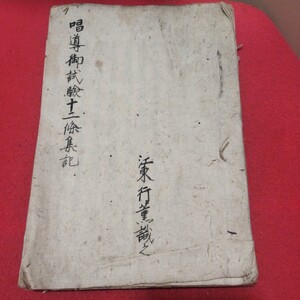 唱導御試驗十二條集記
江東行薫識之